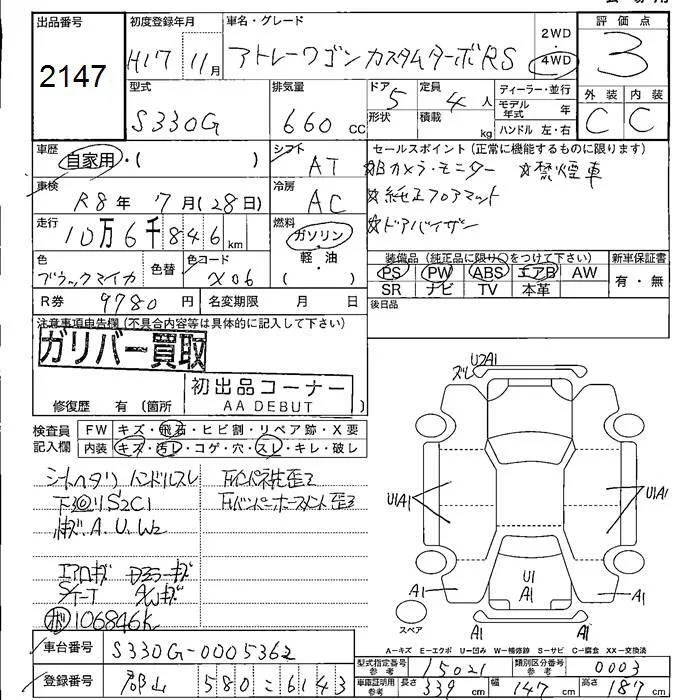 出品番号
2147
初度登録年月
H17 11月
車名・グレード
アトレーワゴン カスタムターボRS
2WD
4WD
評価点
3
型式
S330G
排気量
660 cc
ドア
5
形状
定員
4 人
積載
kg
ディーラー・並行
モデル年式 年
ハンドル 左・右
外装 内装
C C
車歴
自家用・( )
シフト
AT
セールスポイント (正常に機能するものに限ります)
☆Bカメラ・モニター ☆禁煙車
☆純正フロアマット
☆ドアバイザー
車検
R8年 7月(28日)
冷房
AC
走行
10万6千846km
燃料
ガソリン・
軽・油
( )
色
ブラックマイカ
色替
色コード
X06
装備品 (純正品に限り○をつけて下さい)
PS PW ABS エアB AW
SR ナビ TV 本革
新車保証書
有・無
R券 9780 円
名変期限 月 日
後日品
注意事項申告欄 (不具合内容等は具体的に記入して下さい)
ガリバー買取
初出品コーナー
AA DEBUT
修復歴 有 (箇所
検査員
記入欄
FW キズ・飛石・ヒビ割・リペア跡・X要
内装 キズ・汚レ・コゲ・穴・スレ・キレ・破レ
シートヘタリ ハンドルスレ
下回リS2C1
A.U.W2
106846K
車台番号 S330G-0005362
登録番号 郡山 580 6143
ズレ
U2A1
U1A1
U1A1
A1
U1
A1
A1
スペア
A-キズ E-エクボ U-凹み W-補修跡 S-サビ C-腐食 XX-交換済
型式指定番号
参考
15021
類別区分番号
参考
0003
車庫証明用
参考
長さ 339 cm
幅 147 cm
高さ 187 cm